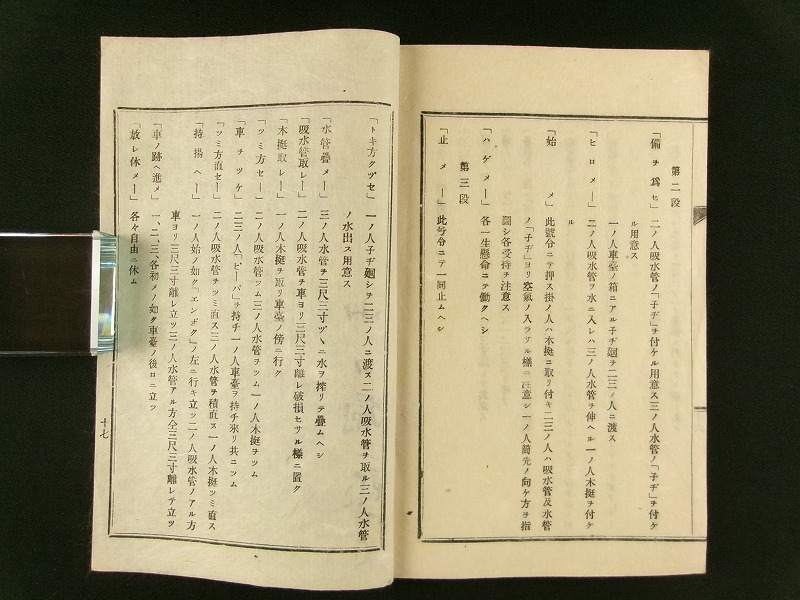 第二段
「備ヲ爲セ」二ノ人吸水管ノ「子ヂ」ヲ付ケル用意ス三ノ人水管ノ「子ヂ」ヲ付ケ
ル用意ス
一ノ人車臺ノ箱ニアル子ヂ廻ヲ二三ノ人ニ渡ス
「ヒロメー」二ノ人吸水管ヲ水ニ入レハ三ノ人水管ヲ伸ヘル一ノ人木挺ヲ付ケ
ル
「始メ」此號令ニテ押ス掛ノ人ハ木挺ニ取リ付キ二三ノ人ハ吸水管及水管
ノ「子ヂ」ヨリ空氣ノ入ラサル樣ニ注意シ一ノ人筒先ノ向ケ方ヲ指
圖シ各受持ヲ注意ス
「ハゲメー」各一生懸命ニテ働クヘシ
第三段
「止メー」此号令ニテ一同止ムヘシ
「トキ方クヅセ」一ノ人子ヂ廻シヲ二三ノ人ニ渡ス二ノ人吸水管ヲ取ル三ノ人水管
ノ水出ス用意ス
「水管疊メー」三ノ人水管ヲ三尺三寸ヅヽニ水ヲ搾リテ疊ムヘシ
「吸水管取レー」二ノ人吸水管ヲ車ヨリ三尺三寸離レ破損セサル樣ニ置ク
「木挺取レー」一ノ人木挺ヲ取リ車臺ノ傍ニ行ク
「ツミ方セー」二ノ人吸水管ツム三ノ人水管ヲツム一ノ人木挺ヲツム
「車ヲツケ」二三ノ人「ピーパ」ヲ持チ一ノ人車臺ヲ持チ來リ共ニツム
「ツミ方直セー」二ノ人吸水管ヲツミ直ス三ノ人水管ヲ積直ス一ノ人木挺ツミ直ス
「持揚ヘー」一ノ人始ノ如ク「エンボク」ノ左ニ行キ立ツ二ノ人吸水管ノアル方
車ヨリ三尺三寸離レ立ツ三ノ人水管アル方仝三尺三寸離レテ立ツ
「車ノ跡ヘ進メ」一、二、三、各初メノ如ク車臺ノ後ロニ立ツ
「放レ休メー」各々自由ニ休ム
十七